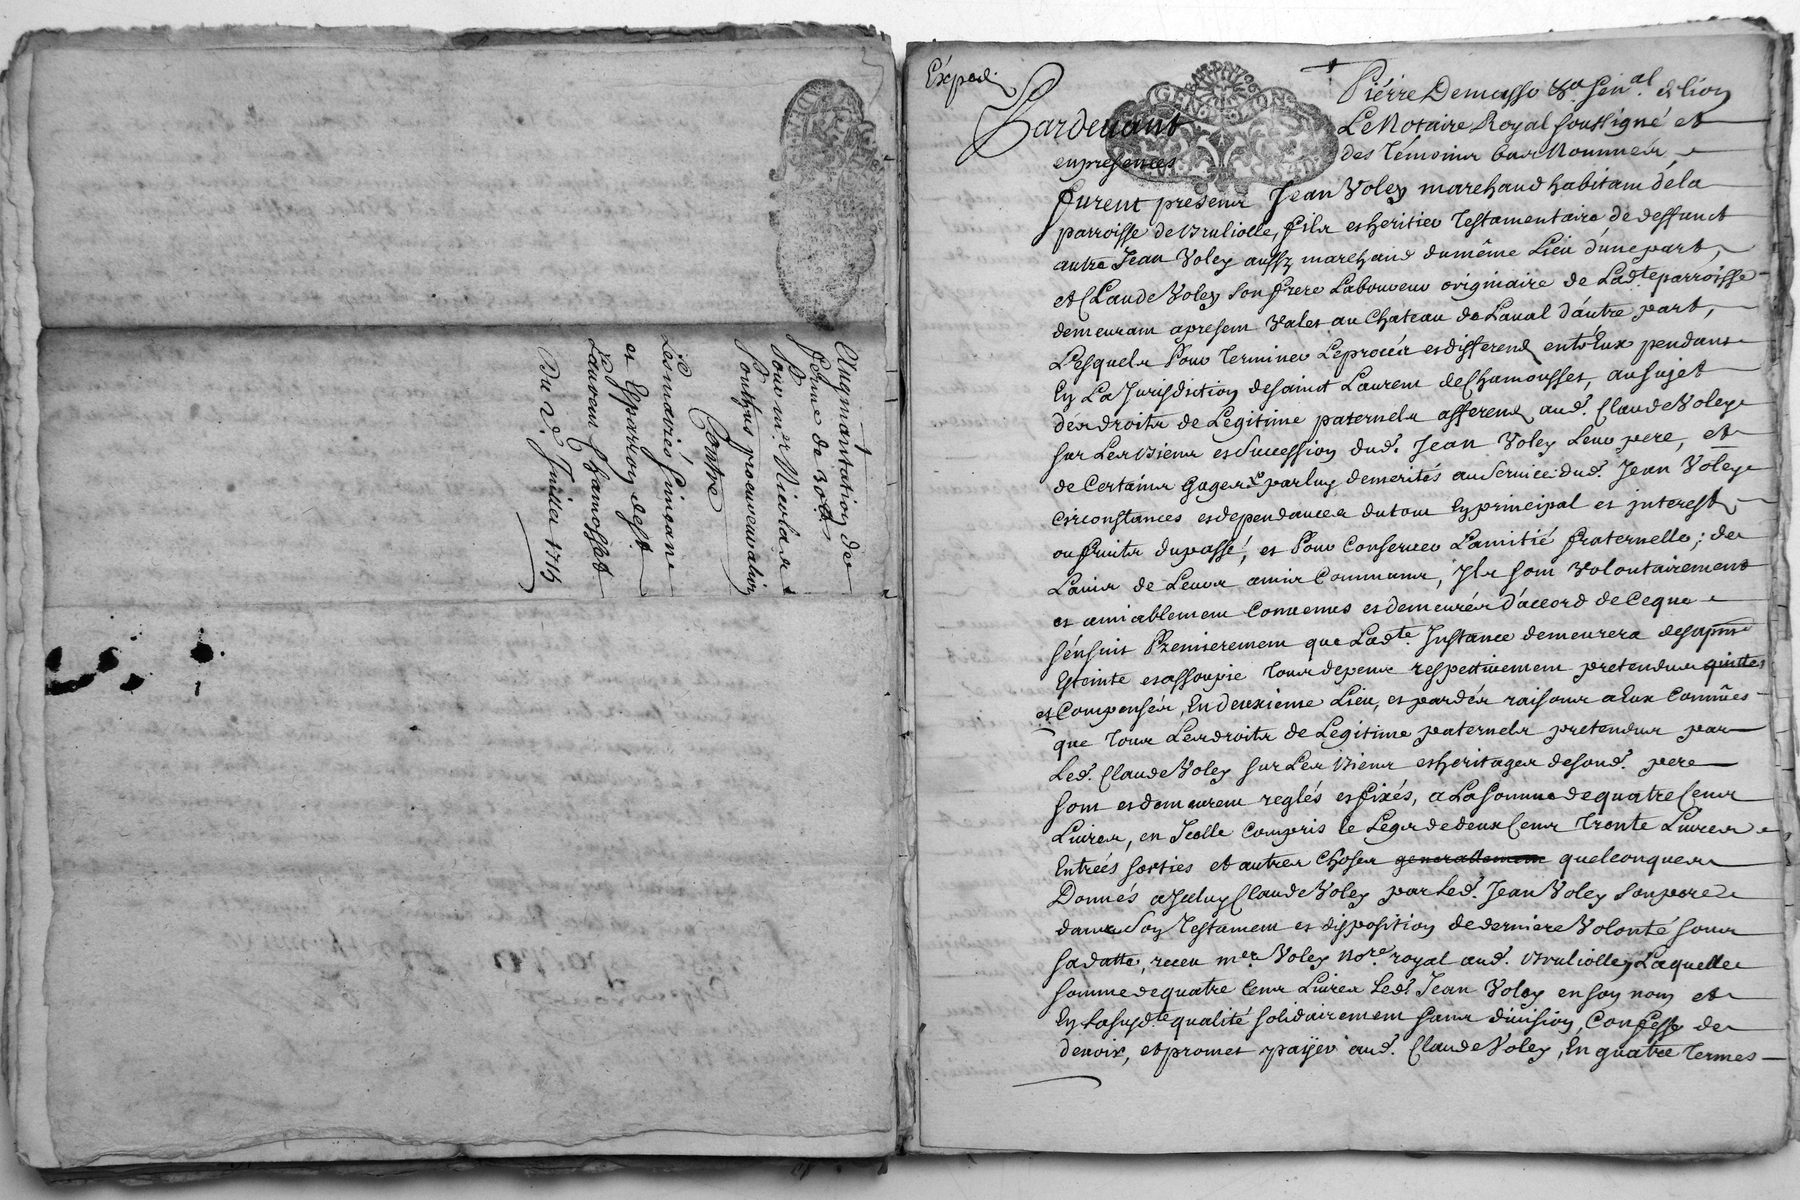 Augmantation de
ferme de 30#
Pour mre Nicolas
Ponthus procureur
Contre
Les mariés Simeane
et Esparron de St
Laurent Chamosset
Du 2e Juillet 1714
Expéd.
Pardevant
Pierre Demasso Sen.al de lion
Le Notaire Royal soussigné et
en presences
des témoins bas Nommés,
furent presens Jean Voley marchand habitant de la
parroisse de Bruliolle, fils et heritier Testamentaire de deffunct
autre Jean Voley aussy marchand du même Lieu d'une part,
et Claude Voley son frere Laboureur originaire de Lad.te parroisse
demeurant apresent Valet au Chateau de Laval d'autre part,
Lesquels Pour Terminer Leprocés et different entr'Eux pendant
En La Jurisdiction de saint Laurent de Chamousset, au sujet
des droits de Legitime paternels afferend aud. Claude Voley
sur Les Biens et Succession dud. Jean Voley Leur pere, et
de Certains Gages par luy demerités au Service dud. Jean Voley
Circonstances et dependances du tout En principal et interest
ou fruits du passé, et Pour Conserver L'amitié fraternelle; de
L'avis de Leurs amis Communs, Ils sont Volontairement
et amiablement Convenus et demeurés d'accord de Ceque
s'ensuit Premierement que Lad.te Instance demeurera
Esteinte et assoupie tous depens respectivement pretendus quittes
et Compensés, En deuxieme Lieu, et par des raisons a Eux Connües
que Tous Les droits de Legitime paternels pretendus par
Led. Claude Voley sur Les Biens et heritages de sond. pere
sont et demeurent reglés et fixés, a La somme de quatre Cens
Livres, en Icelle Compris le Legs de deux Cens Trente Livres
Entrées sorties et autres choses generallement quelconques
Donnés a Iceluy Claude Voley par Led. Jean Voley son pere
dans Son Testament et disposition de derniere Volonté sous
sa datte, receu me Voley no.re royal aud. Brulliolles, Laquelle
somme de quatre Cens Livres Led. Jean Voley en son nom et
En sa susd.te qualité solidairement sans division, Confesse de
devoir, et promet payer aud. Claude Voley, En quatre Termes